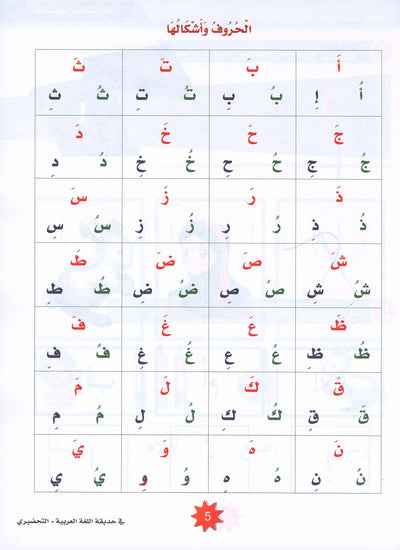 الْحُرُوفُ وَأَشْكَالُهَا
أَ بَ تَ ثَ
أُ إِ بُ بِ تُ تِ ثُ ثِ
جَ حَ خَ دَ
جُ جِ حُ حِ خُ خِ دُ دِ
ذَ رَ زَ سَ
ذُ ذِ رُ رِ زُ زِ سُ سِ
شَ صَ ضَ طَ
شُ شِ صُ صِ ضُ ضِ طُ طِ
ظَ عَ غَ فَ
ظُ ظِ عُ عِ غُ غِ فُ فِ
قَ كَ لَ مَ
قُ قِ كُ كِ لُ لِ مُ مِ
نَ هَ وَ يَ
نُ نِ هُ هِ وُ وِ يُ يِ
5
في حديقة اللغة العربية - التحضيري